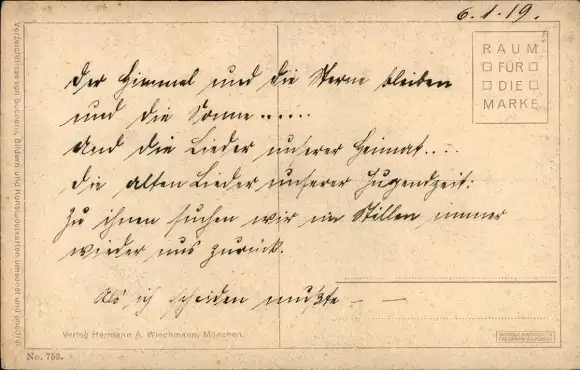 6.1.19.
RAUM
FÜR
DIE
MARKE
Der Himmel und die Sterne bleiben
und die Sonne......
Und die Lieder unserer Heimat....
die alten Lieder unserer Jugendzeit:
Zu ihnen suchen wir im Stillen immer
wieder uns zurück.
Als ich scheiden mußte — —
Verlag Hermann A. Wiechmann, München.
No. 753.
Verzeichnisse von Büchern, Bildern und Kunstpostkarten umsonst und postfrei.